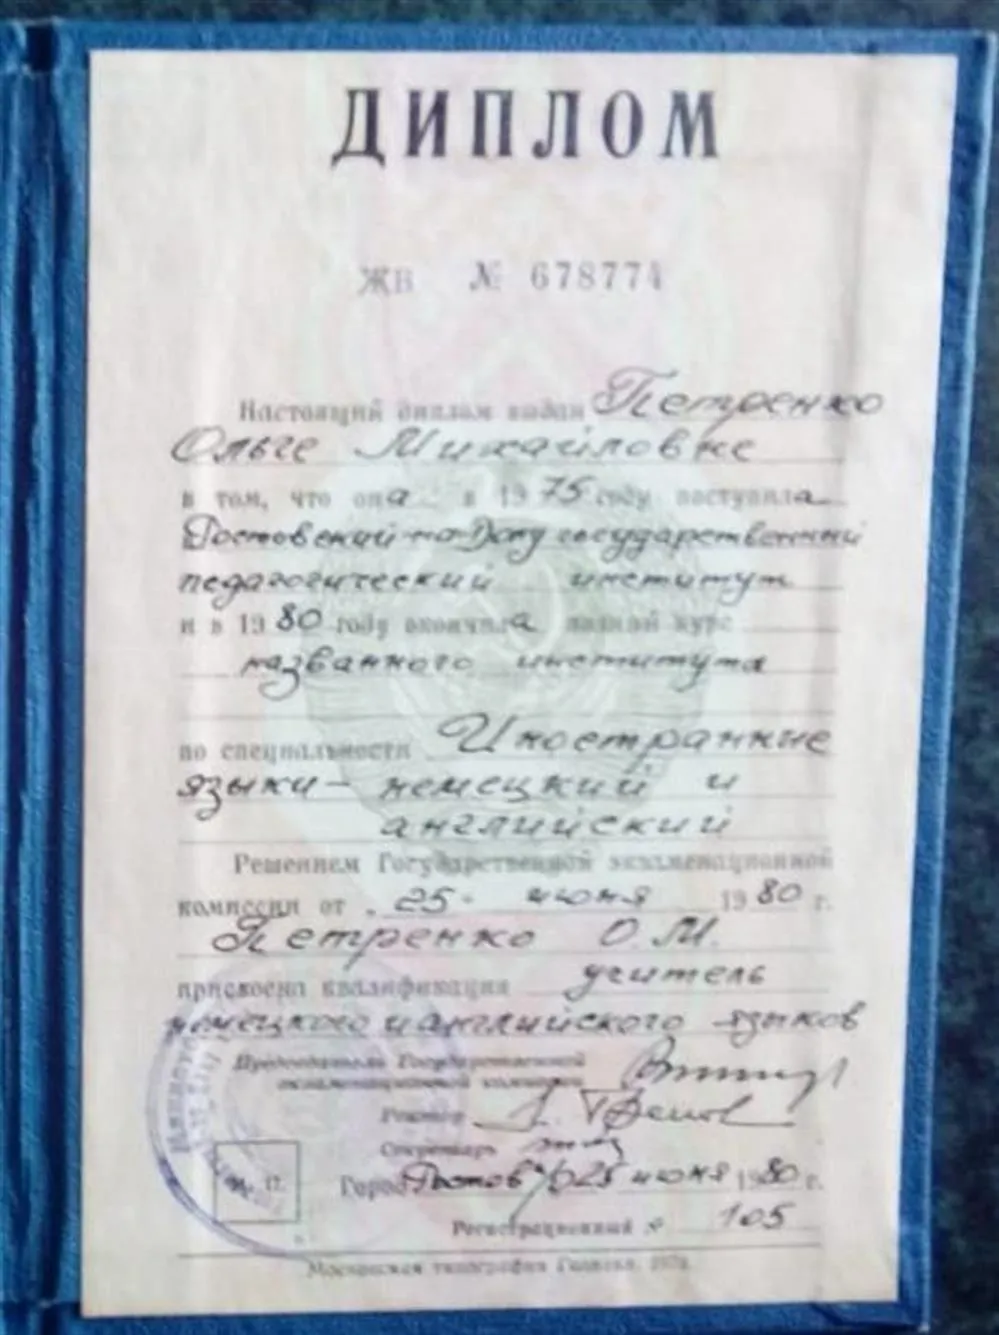 ДИПЛОМ
ЖВ № 678774
Настоящий диплом выдан Петренко
Ольге Михайловне
в том, что она в 1975 году поступила
Ростовский-на-Дону государственный
педагогический институт
и в 1980 году окончила полный курс
названного института
по специальности Иностранные
языки – немецкий и
английский
Решением Государственной экзаменационной
комиссии от „25" июня 1980 г.
Петренко О.М.
присвоена квалификация учитель
немецкого и английского языков
Председатель Государственной
экзаменационной комиссии
Ректор
Секретарь
М. П.
Город Ростов н/Д 25 июня 1980 г.
Регистрационный № 105
Московская типография Гознака.